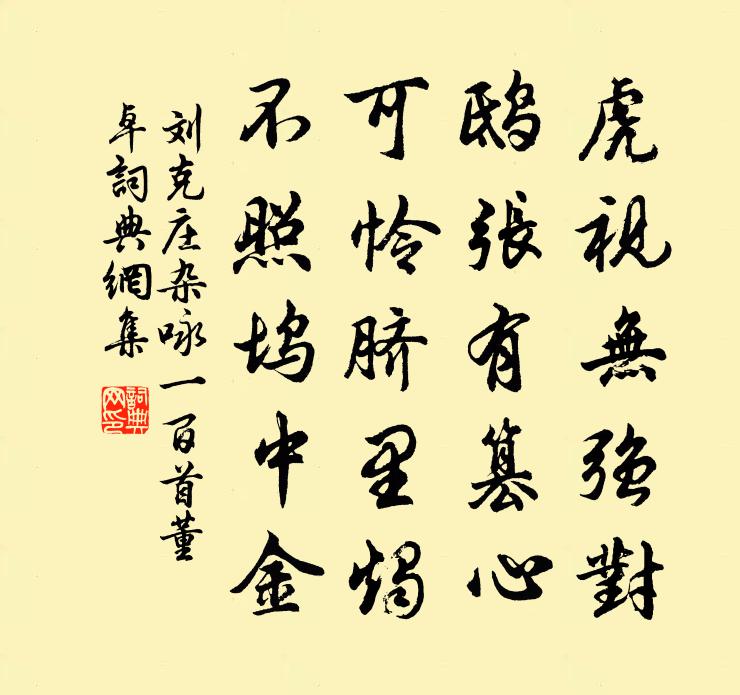 虎視無強對
鴟張有篡心
可怜脐里燭
不照坞中金
刘克庄杂咏一百首董
卓詞典網集
詞典网印